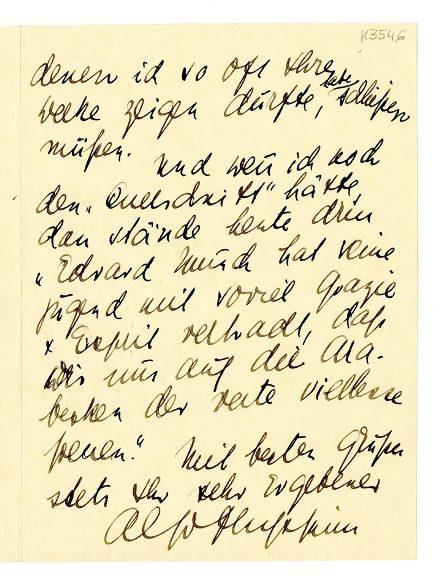 K3546
denen ich so oft Ihre
habe
Werke zeigen durfte, schließen
müßen. Und wen̄ ich noch
den „Querschnitt" hätte,
dan̄ stände heute drin
„Edvard Munch hat seine
Jugend mit soviel Grazie
& Esprit verbracht, daß
wir uns auf die Ara-
besken der verte viellesse
freuen." Mit besten Grüßen
stets Ihr sehr Ergebener
Flechtheim